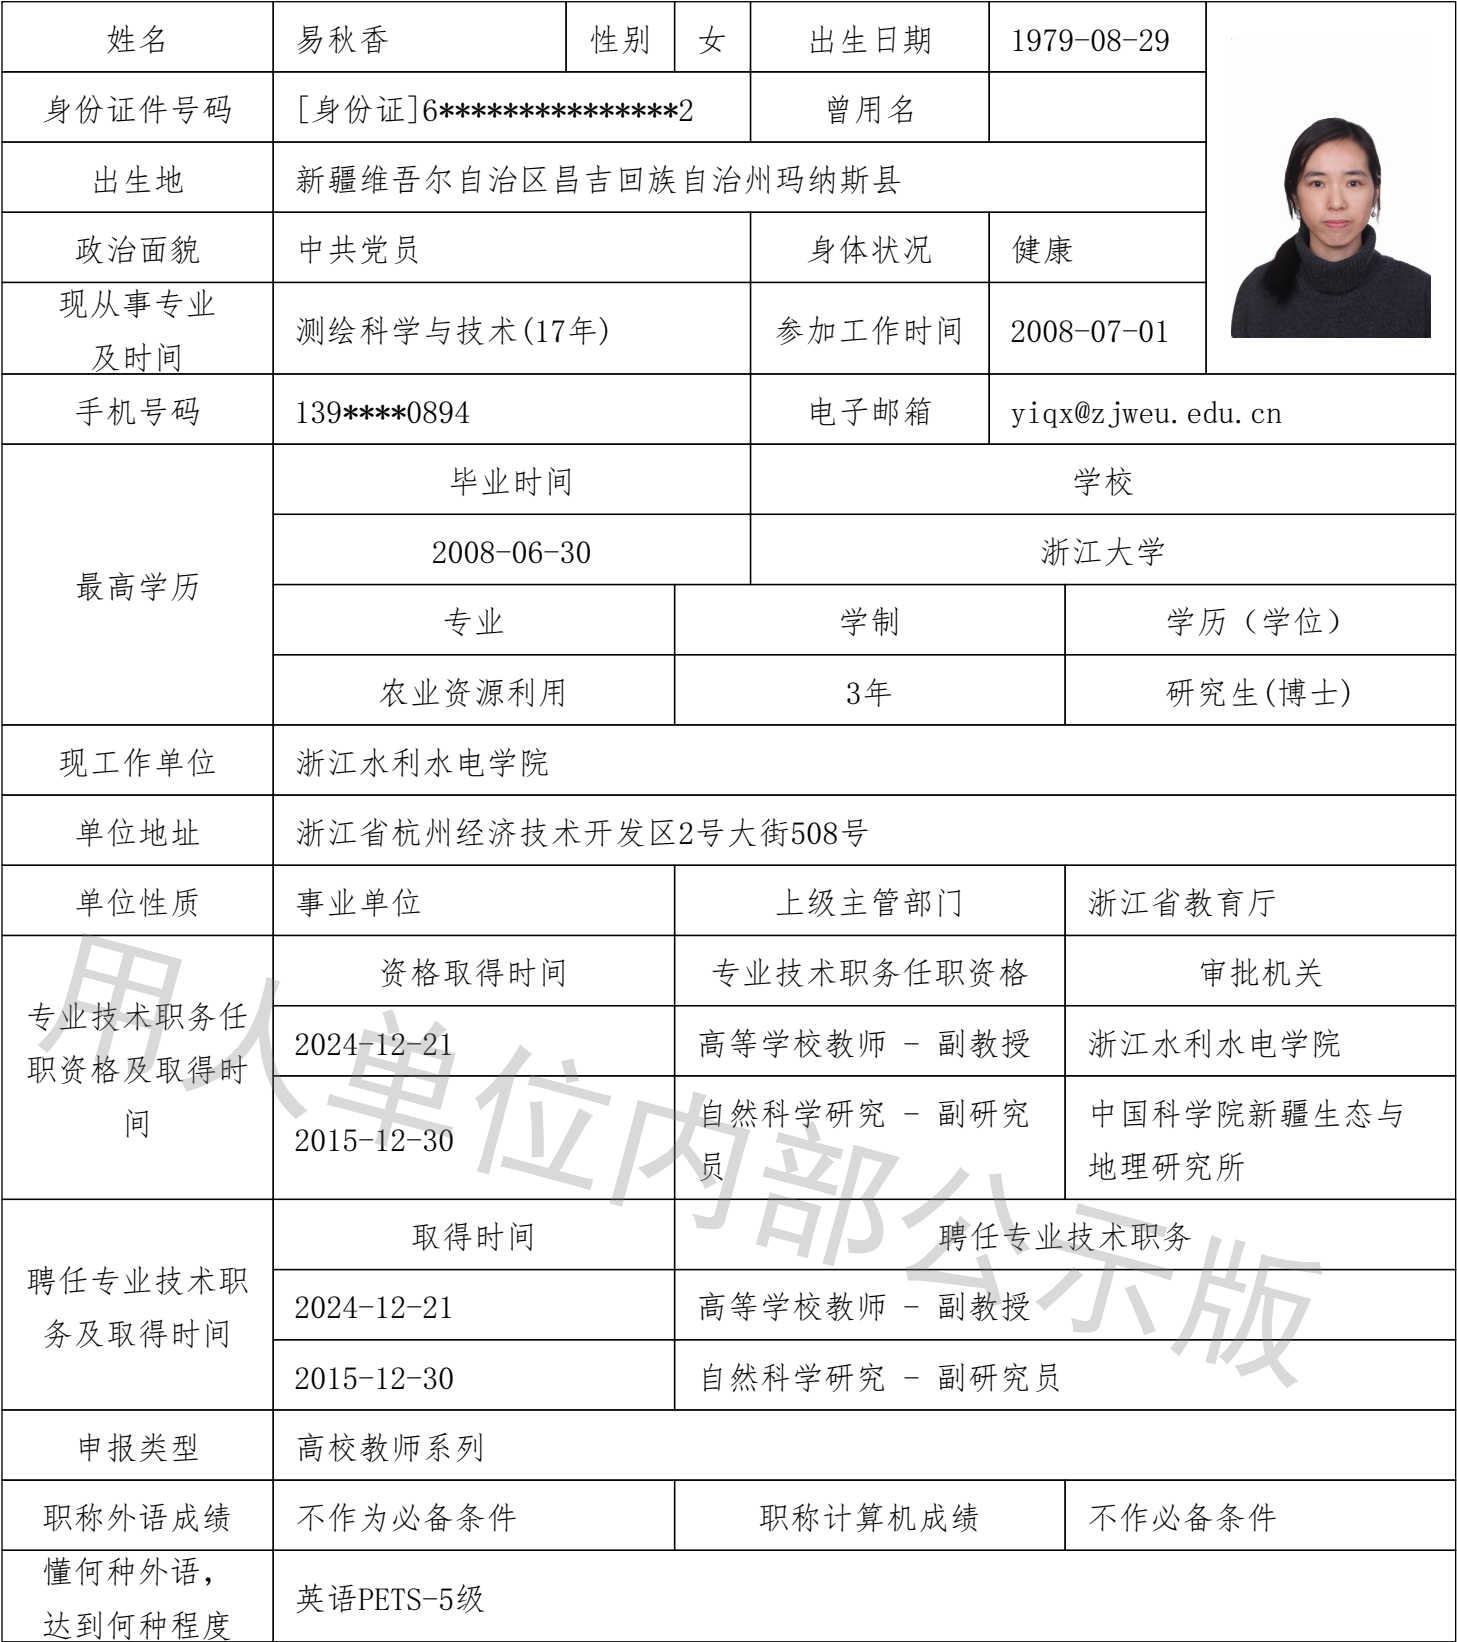 姓名 易秋香 性别 女 出生日期 1979-08-29
身份证件号码 [身份证]6***************2 曾用名
出生地 新疆维吾尔自治区昌吉回族自治州玛纳斯县
政治面貌 中共党员 身体状况 健康
现从事专业
及时间
测绘科学与技术(17年) 参加工作时间 2008-07-01
手机号码 139****0894 电子邮箱 yiqx@zjweu.edu.cn
最高学历
毕业时间 学校
2008-06-30 浙江大学
专业 学制 学历（学位）
农业资源利用 3年 研究生(博士)
现工作单位 浙江水利水电学院
单位地址 浙江省杭州经济技术开发区2号大街508号
单位性质 事业单位 上级主管部门 浙江省教育厅
专业技术职务任
职资格及取得时
间
资格取得时间 专业技术职务任职资格 审批机关
2024-12-21 高等学校教师 - 副教授 浙江水利水电学院
2015-12-30
自然科学研究 - 副研究
员
中国科学院新疆生态与
地理研究所
聘任专业技术职
务及取得时间
取得时间 聘任专业技术职务
2024-12-21 高等学校教师 - 副教授
2015-12-30 自然科学研究 - 副研究员
申报类型 高校教师系列
职称外语成绩 不作为必备条件 职称计算机成绩 不作必备条件
懂何种外语，
达到何种程度
英语PETS-5级
用人单位内部公示版